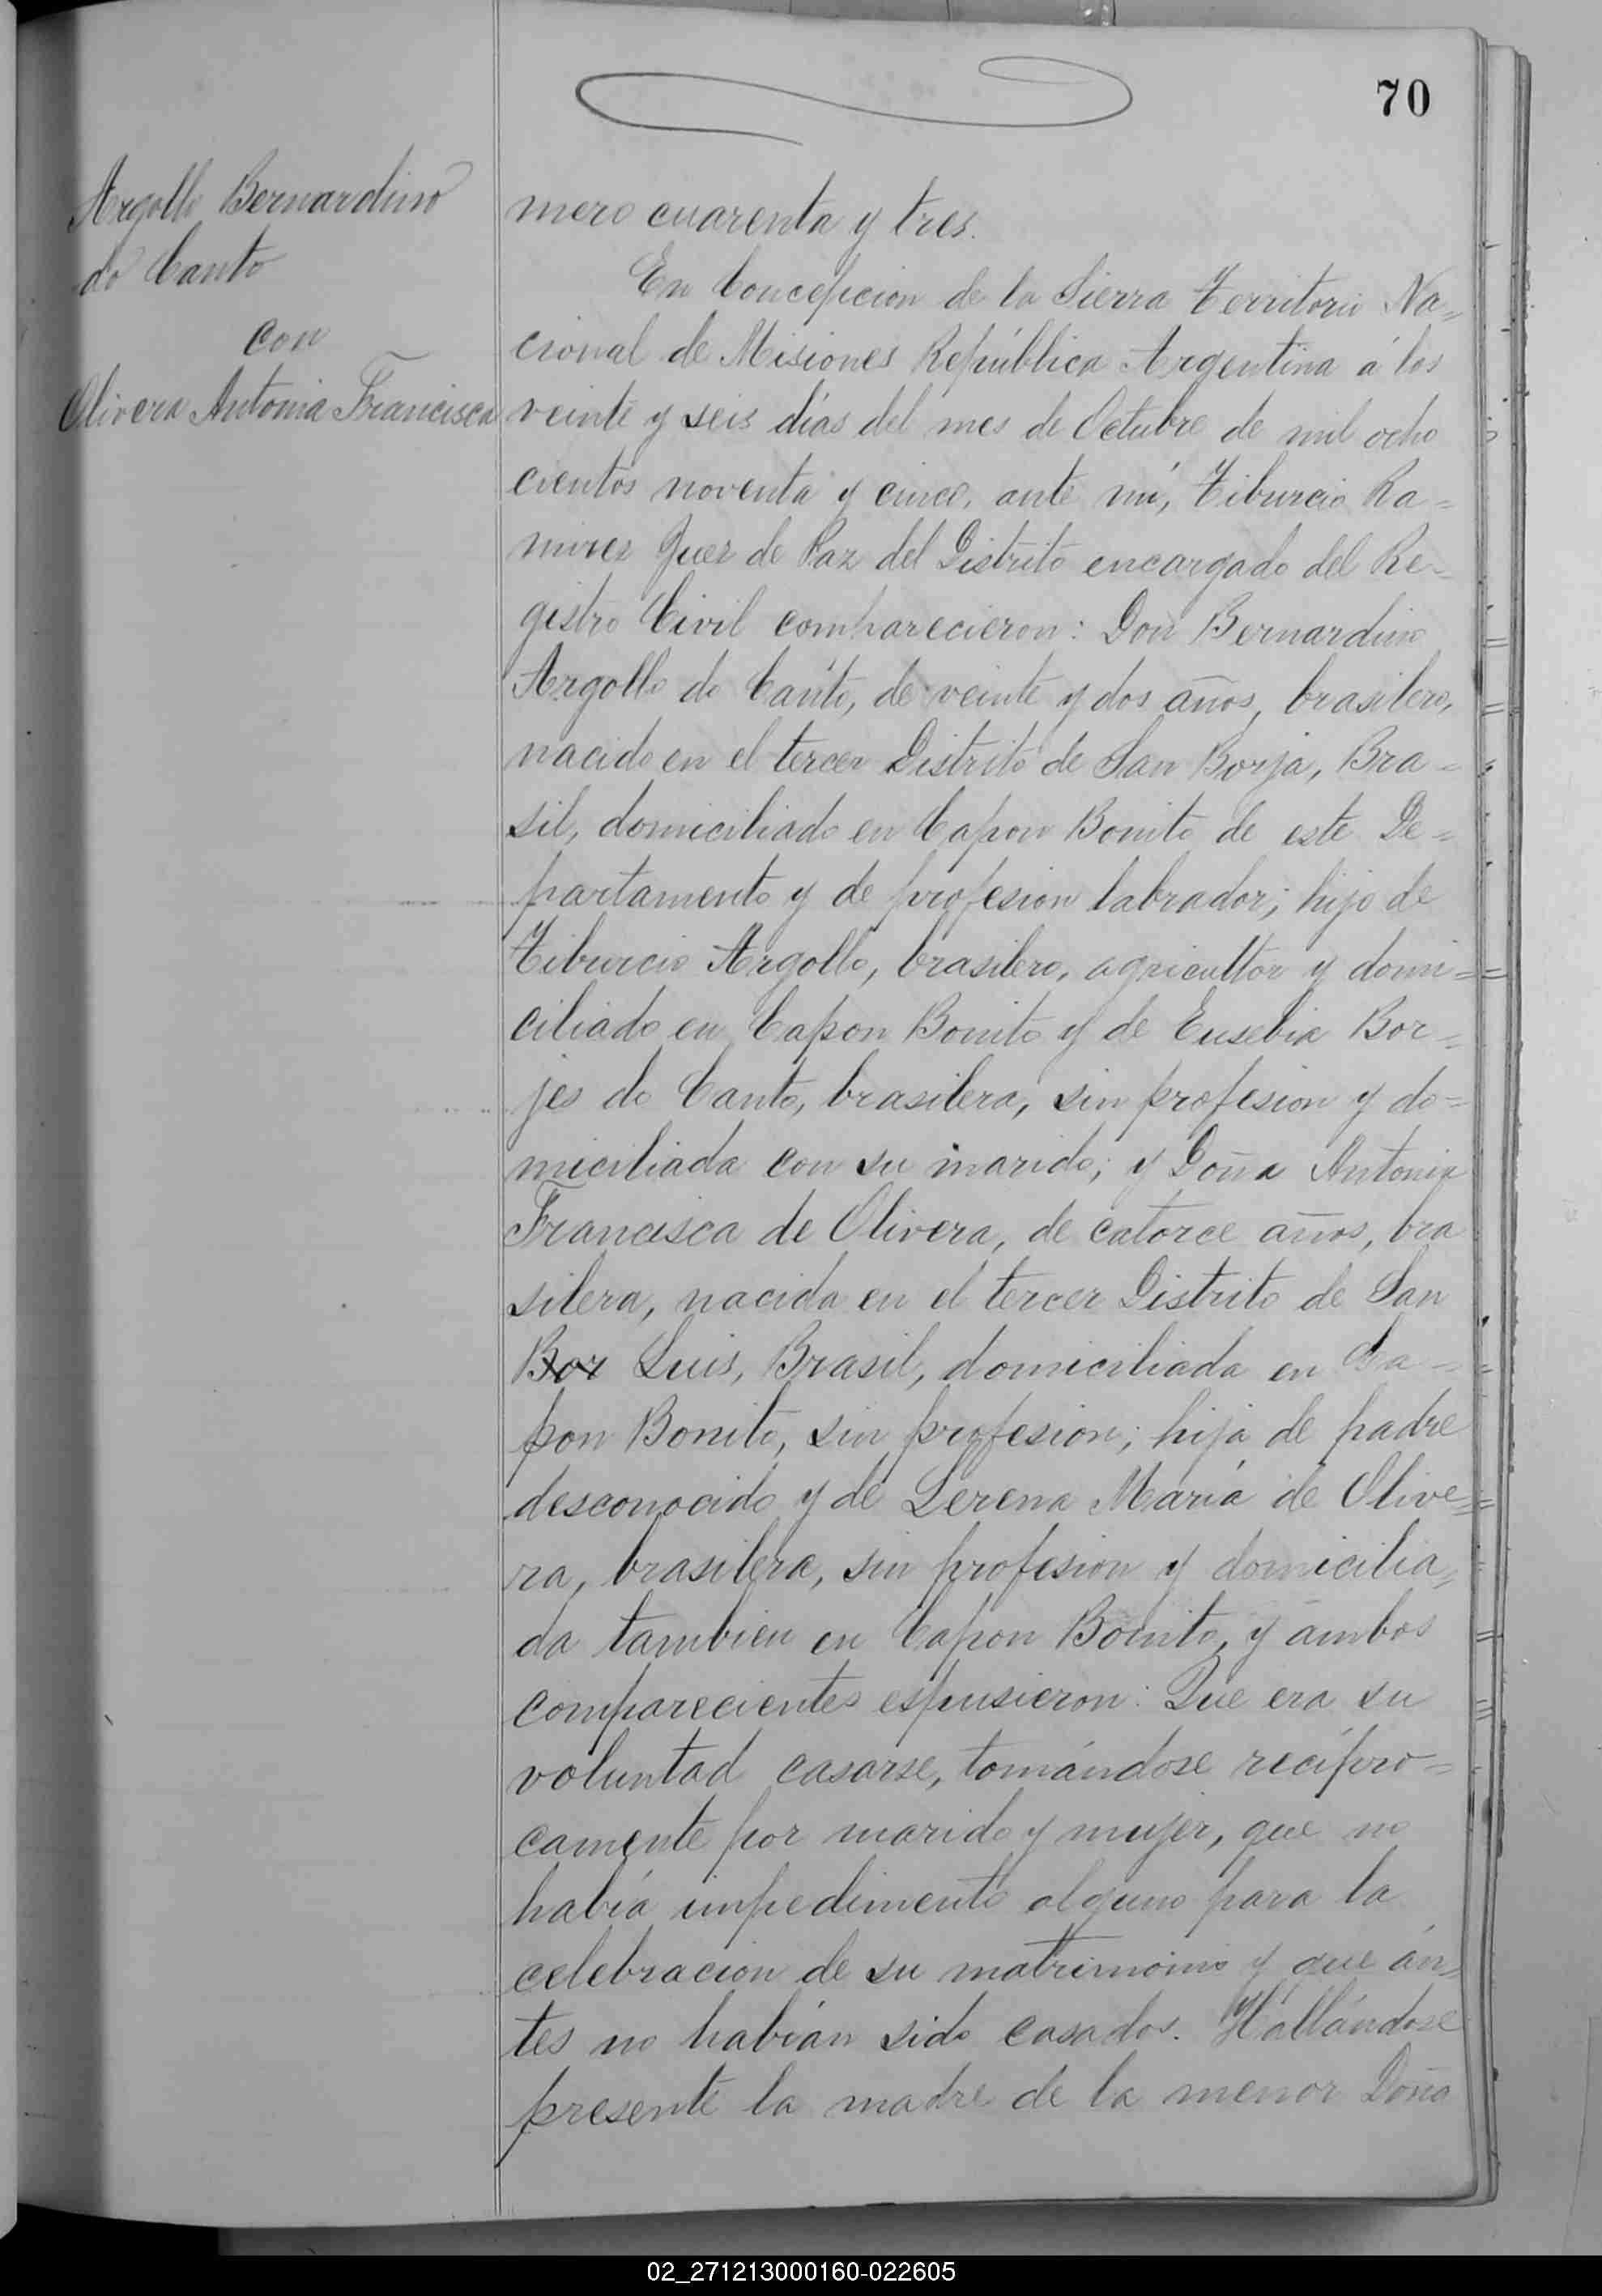 70
Argollo Bernardino
do Canto
con
Olivera Antonia Francisca
mero cuarenta y tres.
En Concepcion de la Sierra Territorio Na=
cional de Misiones República Argentina á los
veinte y seis días del mes de Octubre de mil ocho
cientos noventa y cinco, ante mí, Tiburcio Ra=
mires Juez de Paz del Distrito encargado del Re=
gistro Civil comparecieron: Don Bernardino
Argollo do Canto, de veinte y dos años, brasilero,
nacido en el tercer Distrito de San Borja, Bra=
sil, domiciliado en Capon Bonito de este De=
partamento y de profesion labrador; hijo de
Tiburcio Argollo, brasilero, agricultor y domi=
ciliado en Capon Bonito y de Eusebia Bor=
jes do Canto, brasilera, sin profesion y do=
miciliada con su marido; y Doña Antonia
Francisca de Olivera, de catorce años, bra
silera, nacida en el tercer Distrito de San
Bor Luis, Brasil, domiciliada en Ca=
pon Bonito, sin profesion; hija de padre
desconocido y de Lerena María de Olive=
ra, brasilera, sin profesion y domicilia=
da tambien en Capon Bonito, y ambos
comparecientes espusieron: Que era su
voluntad casarse, tomándose recípro=
camente por marido y mujer, que no
había impedimento alguno para la
celebracion de su matrimonio y que án=
tes no habían sido casados. Hallándose
presente la madre de la menor Doña
02_271213000160-022605